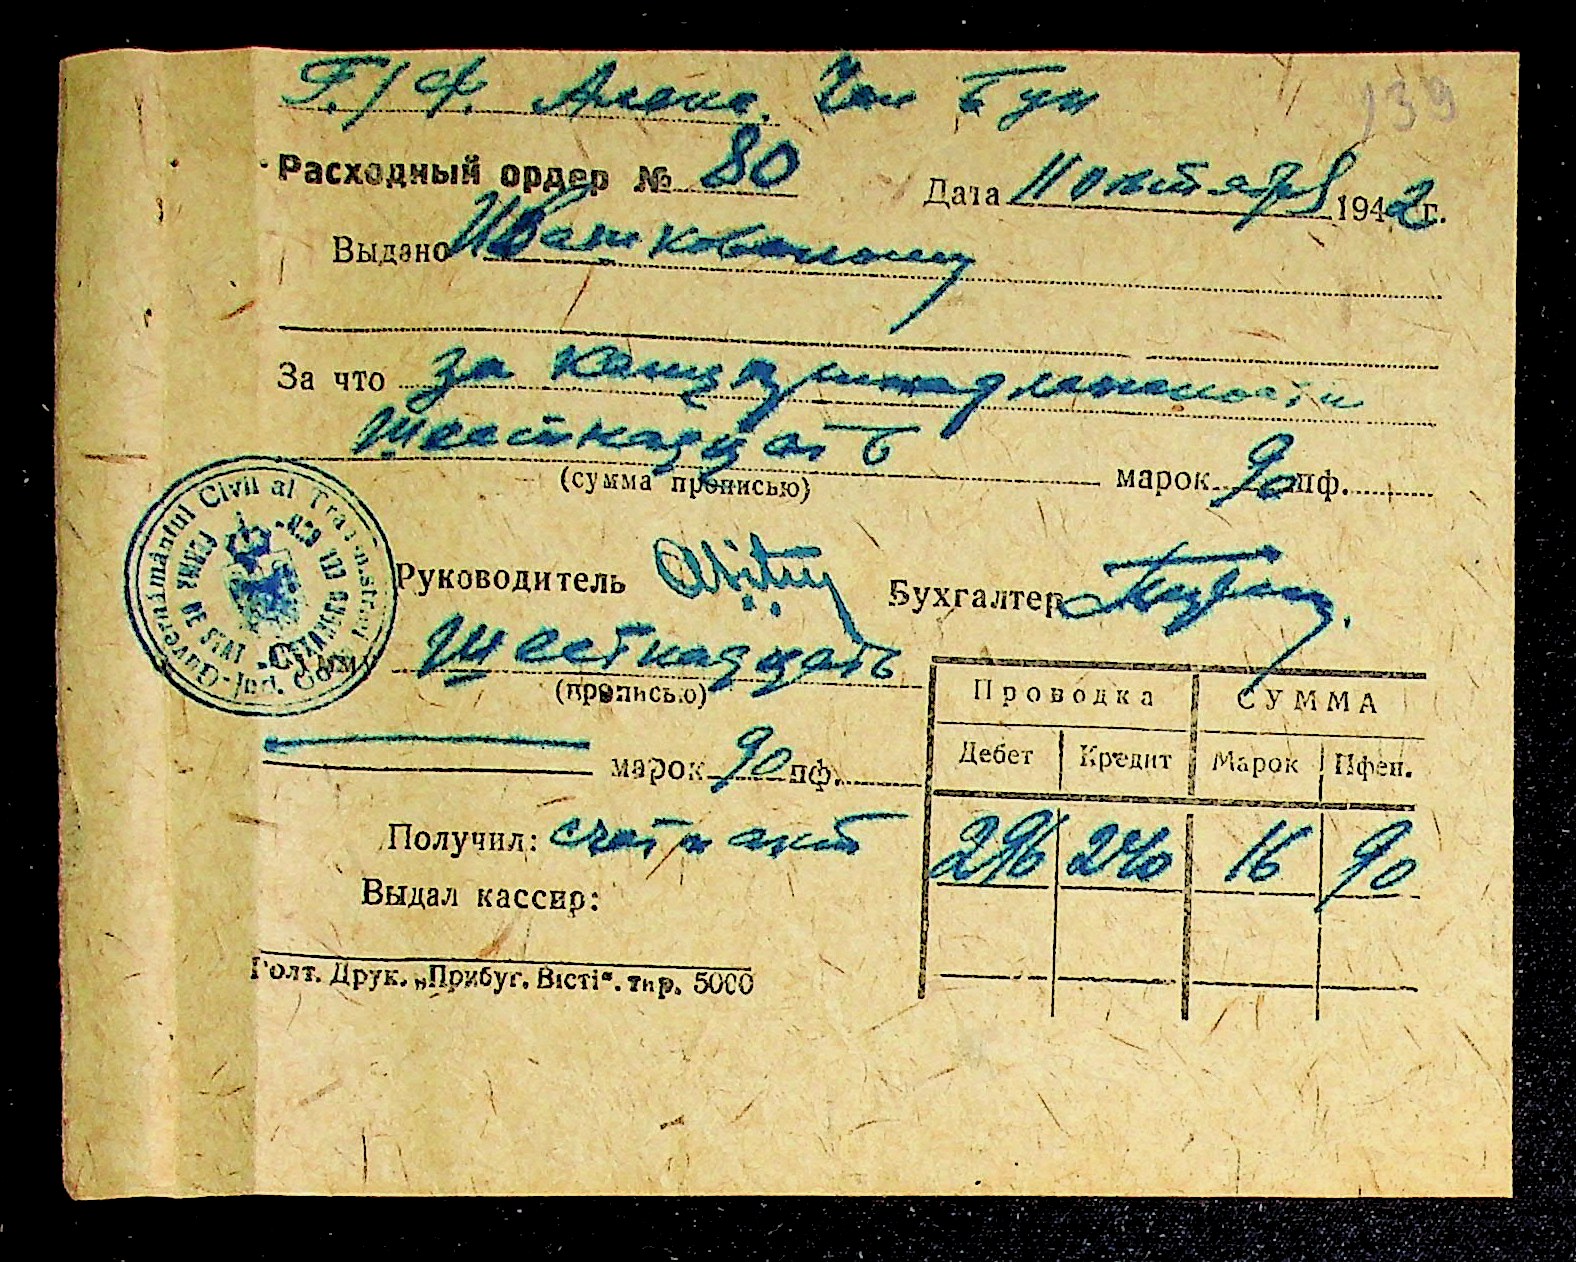 Г./Ф. Алеко Чон Бун
139
Расходный ордер № 80 Дата 11 октября 1942 г.
Выдано Иваньковскому
За что за канцпринадлежности
Шестнадцать
(сумма прописью) марок 90 пф.
Guvernământul Civil al Transnistriei
Jud. Golta
FERMA DE STAT
Руководитель Бухгалтер
Сумма Шестнадцать
(прописью)
марок 90 пф.
Получил: счет и акт
Выдал кассир:
Проводка СУММА
Дебет Кредит Марок Пфен.
296 240 16 90
Голт. Друк. „Прибуг. Вісті“. тир. 5000